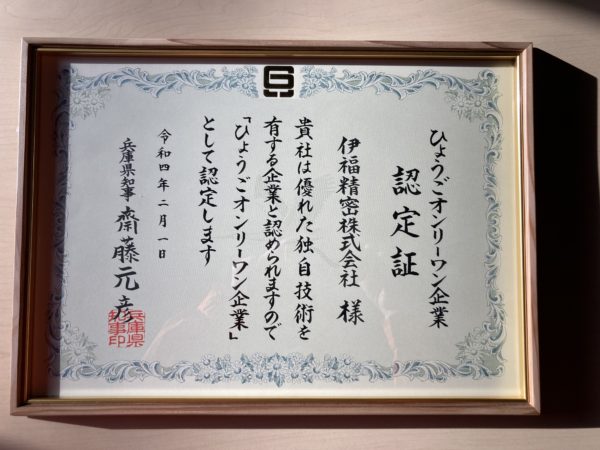 ひょうごオンリーワン企業
認定証
伊福精密株式会社 様
貴社は優れた独自技術を
有する企業と認められますので
「ひょうごオンリーワン企業」
として認定します
令和四年二月一日
兵庫県知事 齋藤元彦
兵庫県
知事印